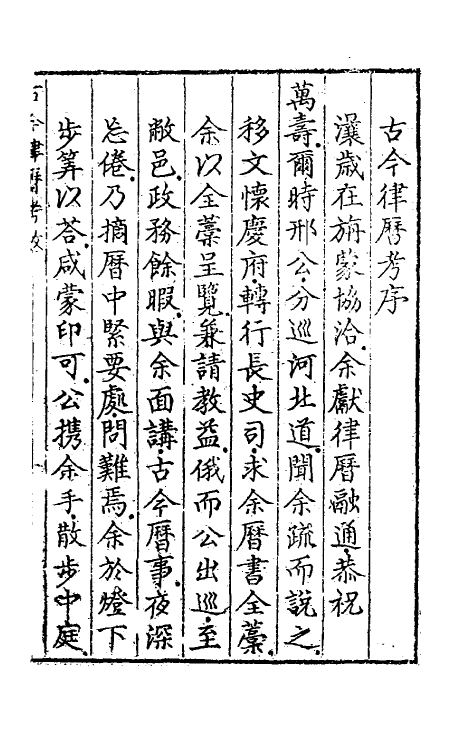 古今律曆考序
瀼歲在旃蒙協洽余獻律曆融通恭祝
萬壽爾時邢公分巡河北道聞余疏而說之
移文懷慶府轉行長史司求余曆書全藁
余以全藁呈覽兼請教益俄而公出巡至
敝邑政務餘暇與余面講古今曆事夜深
忘倦乃摘曆中緊要處問難焉余於燈下
步筭以荅咸蒙印可公携余手散步中庭
古今律曆考